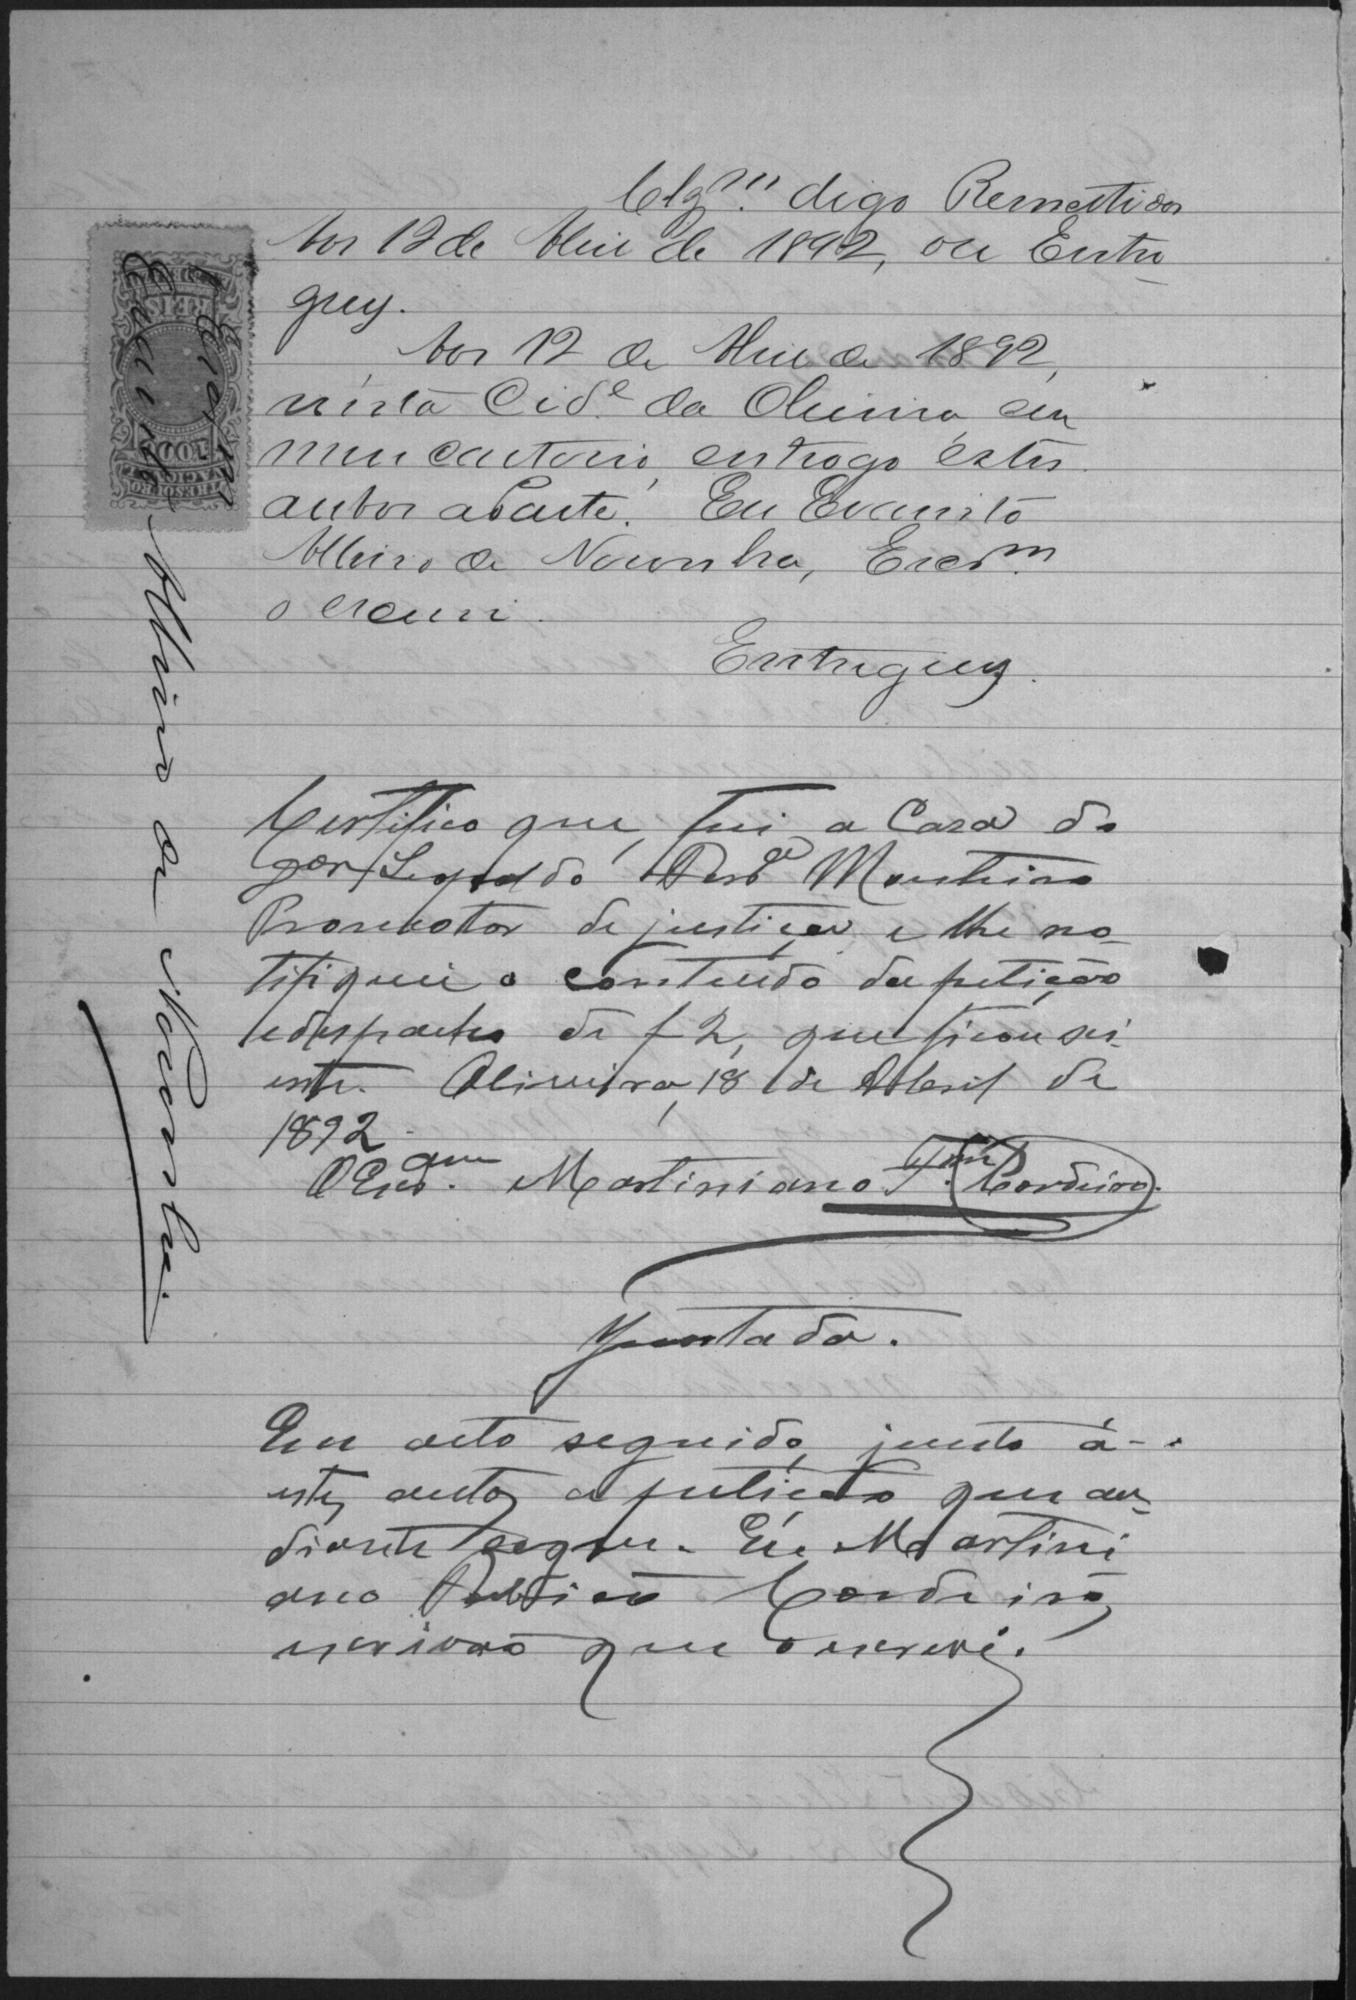 Clz.m digo Remettidos
Aos 12 de Abril de 1892, ou Entre
gues.
Aos 12 de Abril de 1892,
nesta Cid.e da Oliveira, em
meu cartorio, entrego estes
autos a parte. Eu Evaristo
Alvino de Noronha, Escr.m
o escrevi.
Entregues.
Certifico que, fui a Casa do
Leopoldo Monteiro
Promotor de justiça e lhe no-
tifiquei o contendo da petição
e despacho de f 2, que ficou sci-
ente. Oliveira, 18 de Abril de
1892.
O Escr. Martiniano F. Cordeiro.
Juntada.
Em acto seguido, junto á
estes autos a petição que a-
diante segue. Eu Martini
ano Cordeiro,
escrivão que o escrevi.
THESOURO NACIONAL
100
REIS
Evaristo Alvino de Noronha.